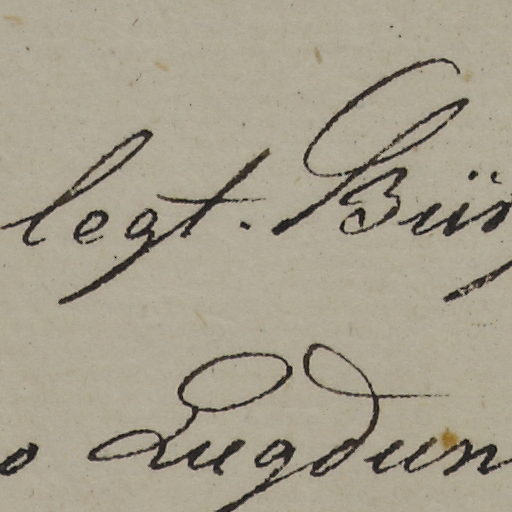 legt. Bür
o Lugdun